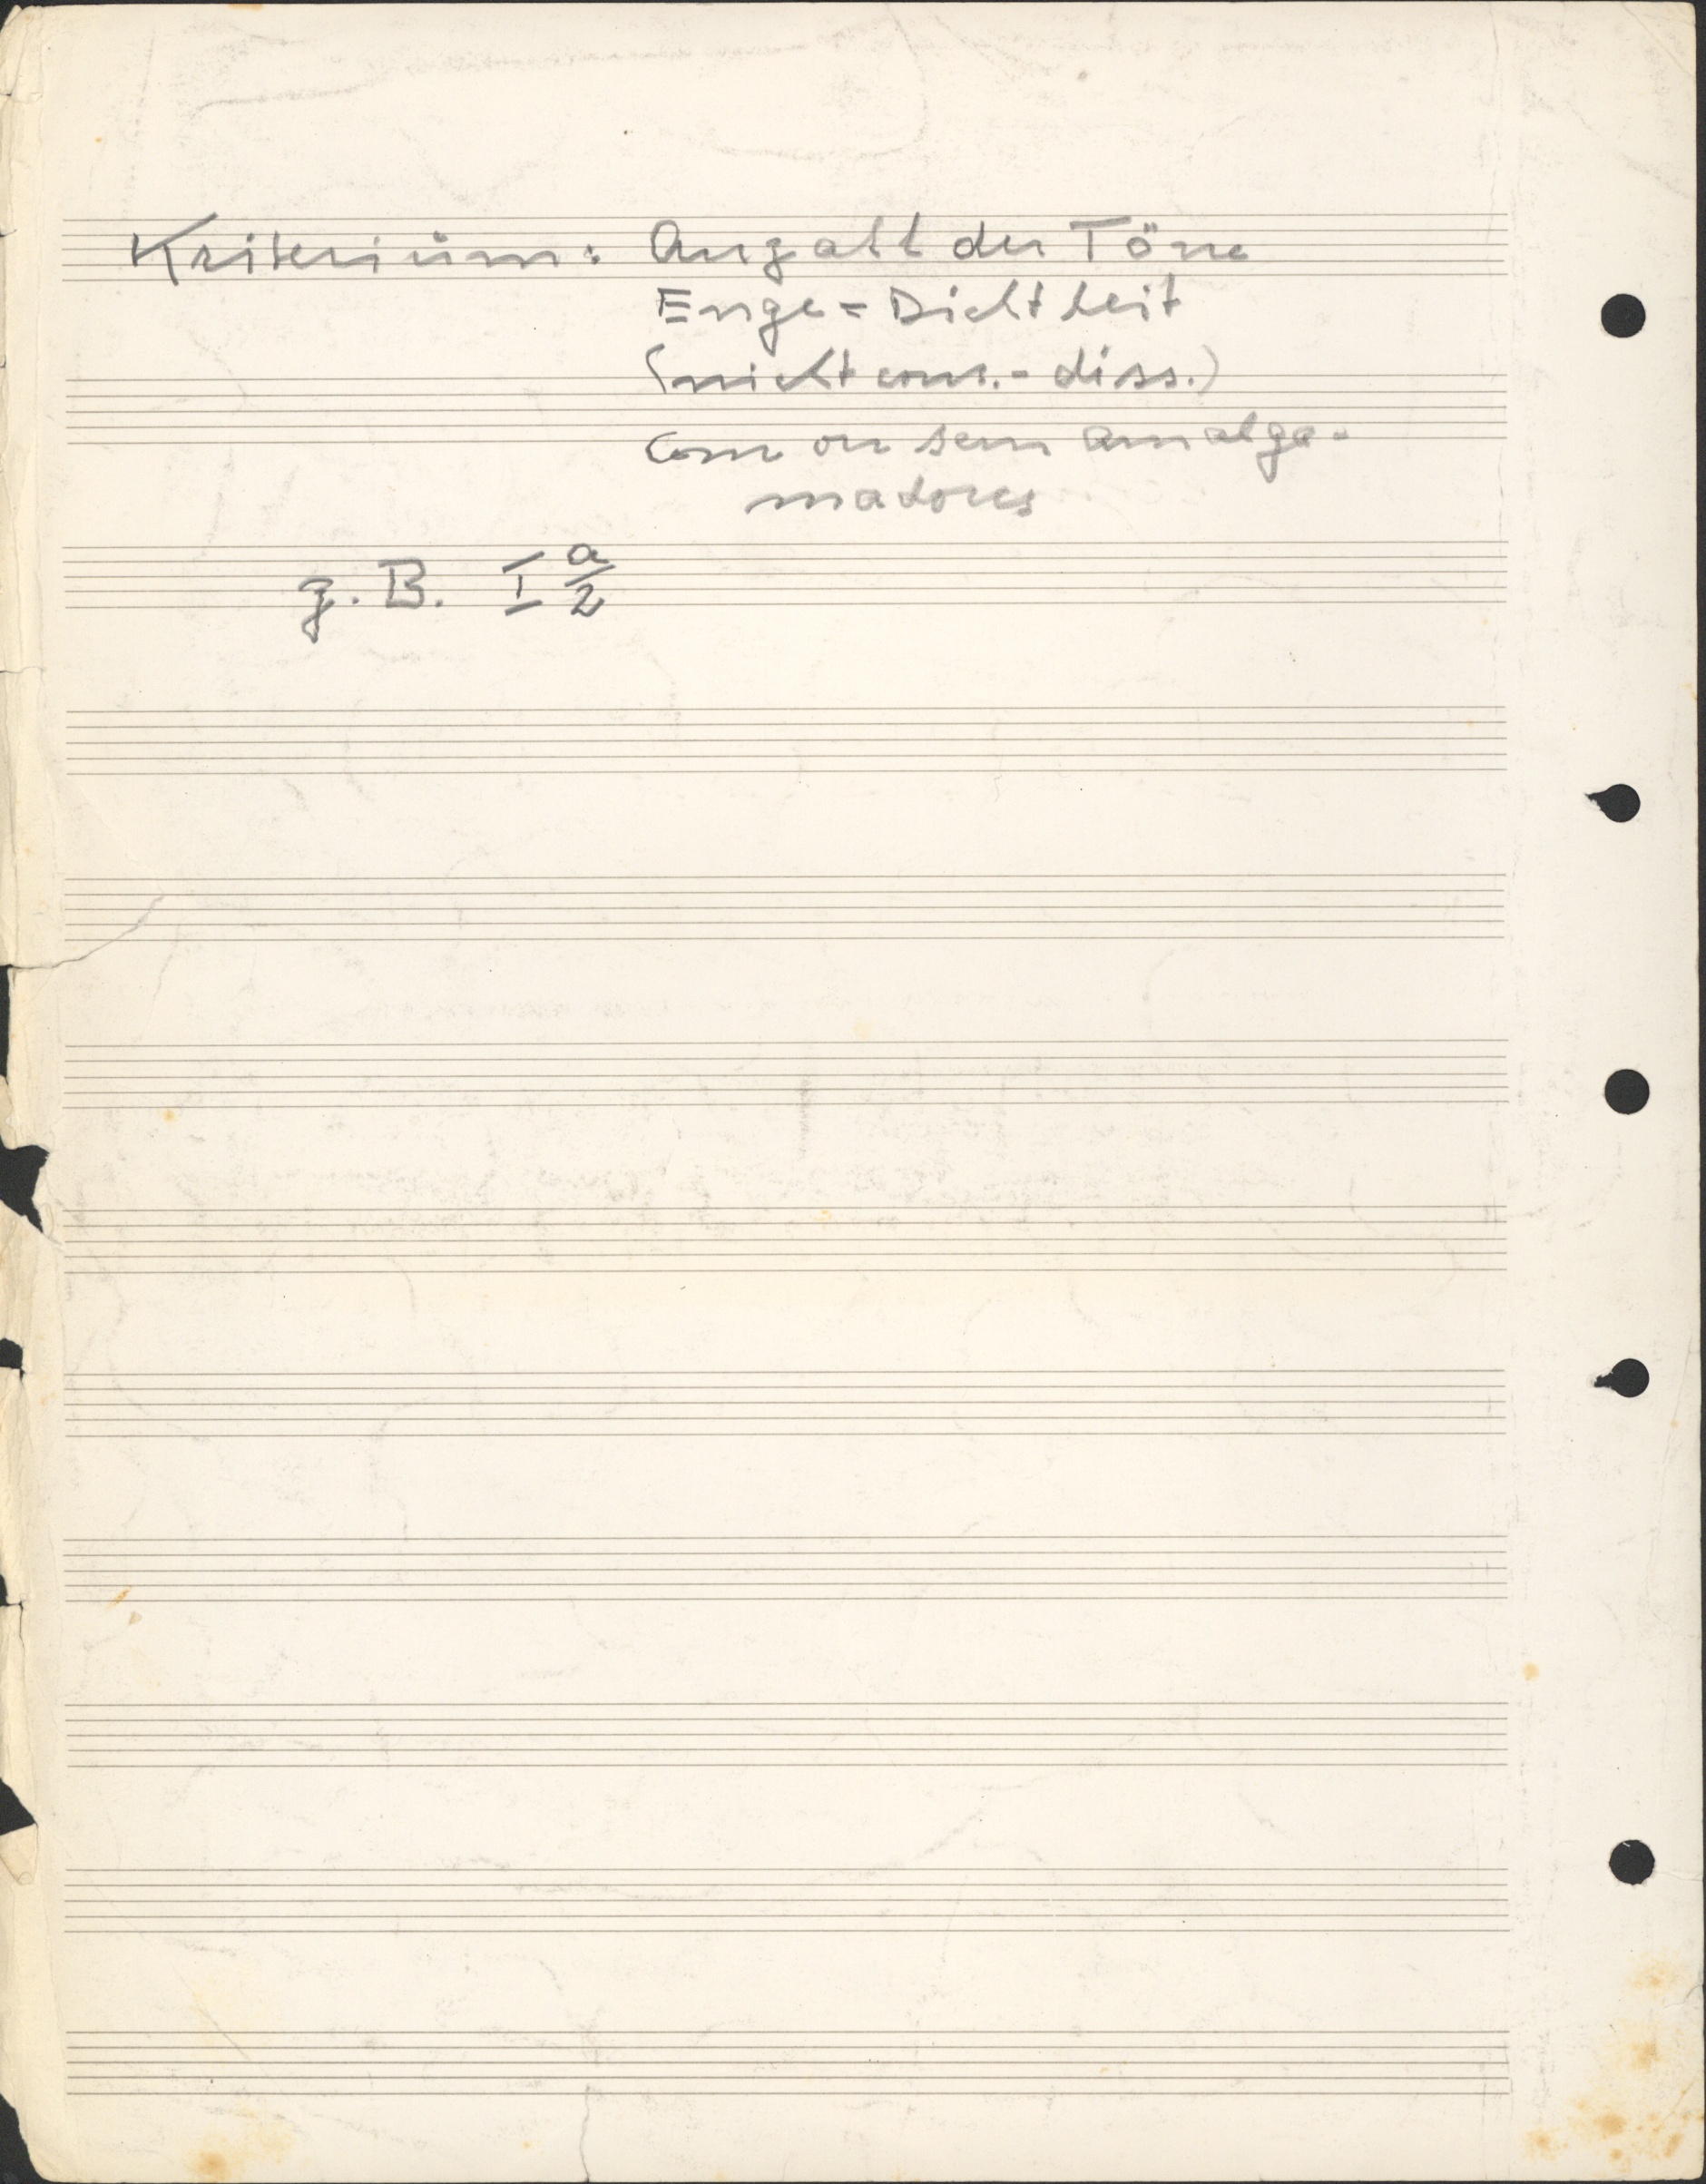 Kriterium: Anzahl der Töne
Enge = Dichtheit
(nicht cons. - diss.)
Com ou sem amalga-
madores
z. B. I a/2